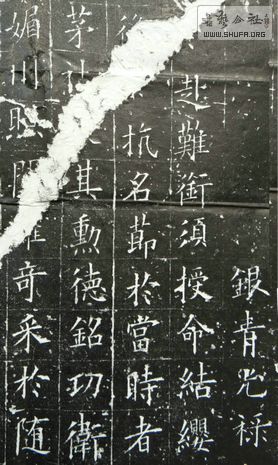 書藝公社
WWW.SHUFA.ORG
銀青光祿
赴難銜須授命結纓
後 抗名莭於當時者
茅社 其勳德銘功衛
媚 奇采於随